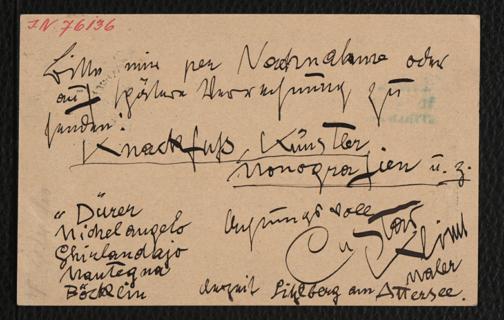 I.N. 76136
Bitte mir per Nachnahme oder
auf spätere Verrechnung zu
senden:
Knackfuß, Künstler
Monografien u. z.
„Dürer
Michelangelo
Ghirlandajo
Mantegna
Böcklin
Achtungsvoll
Gustav
Klimt
Maler
derzeit Litzlberg am Attersee.